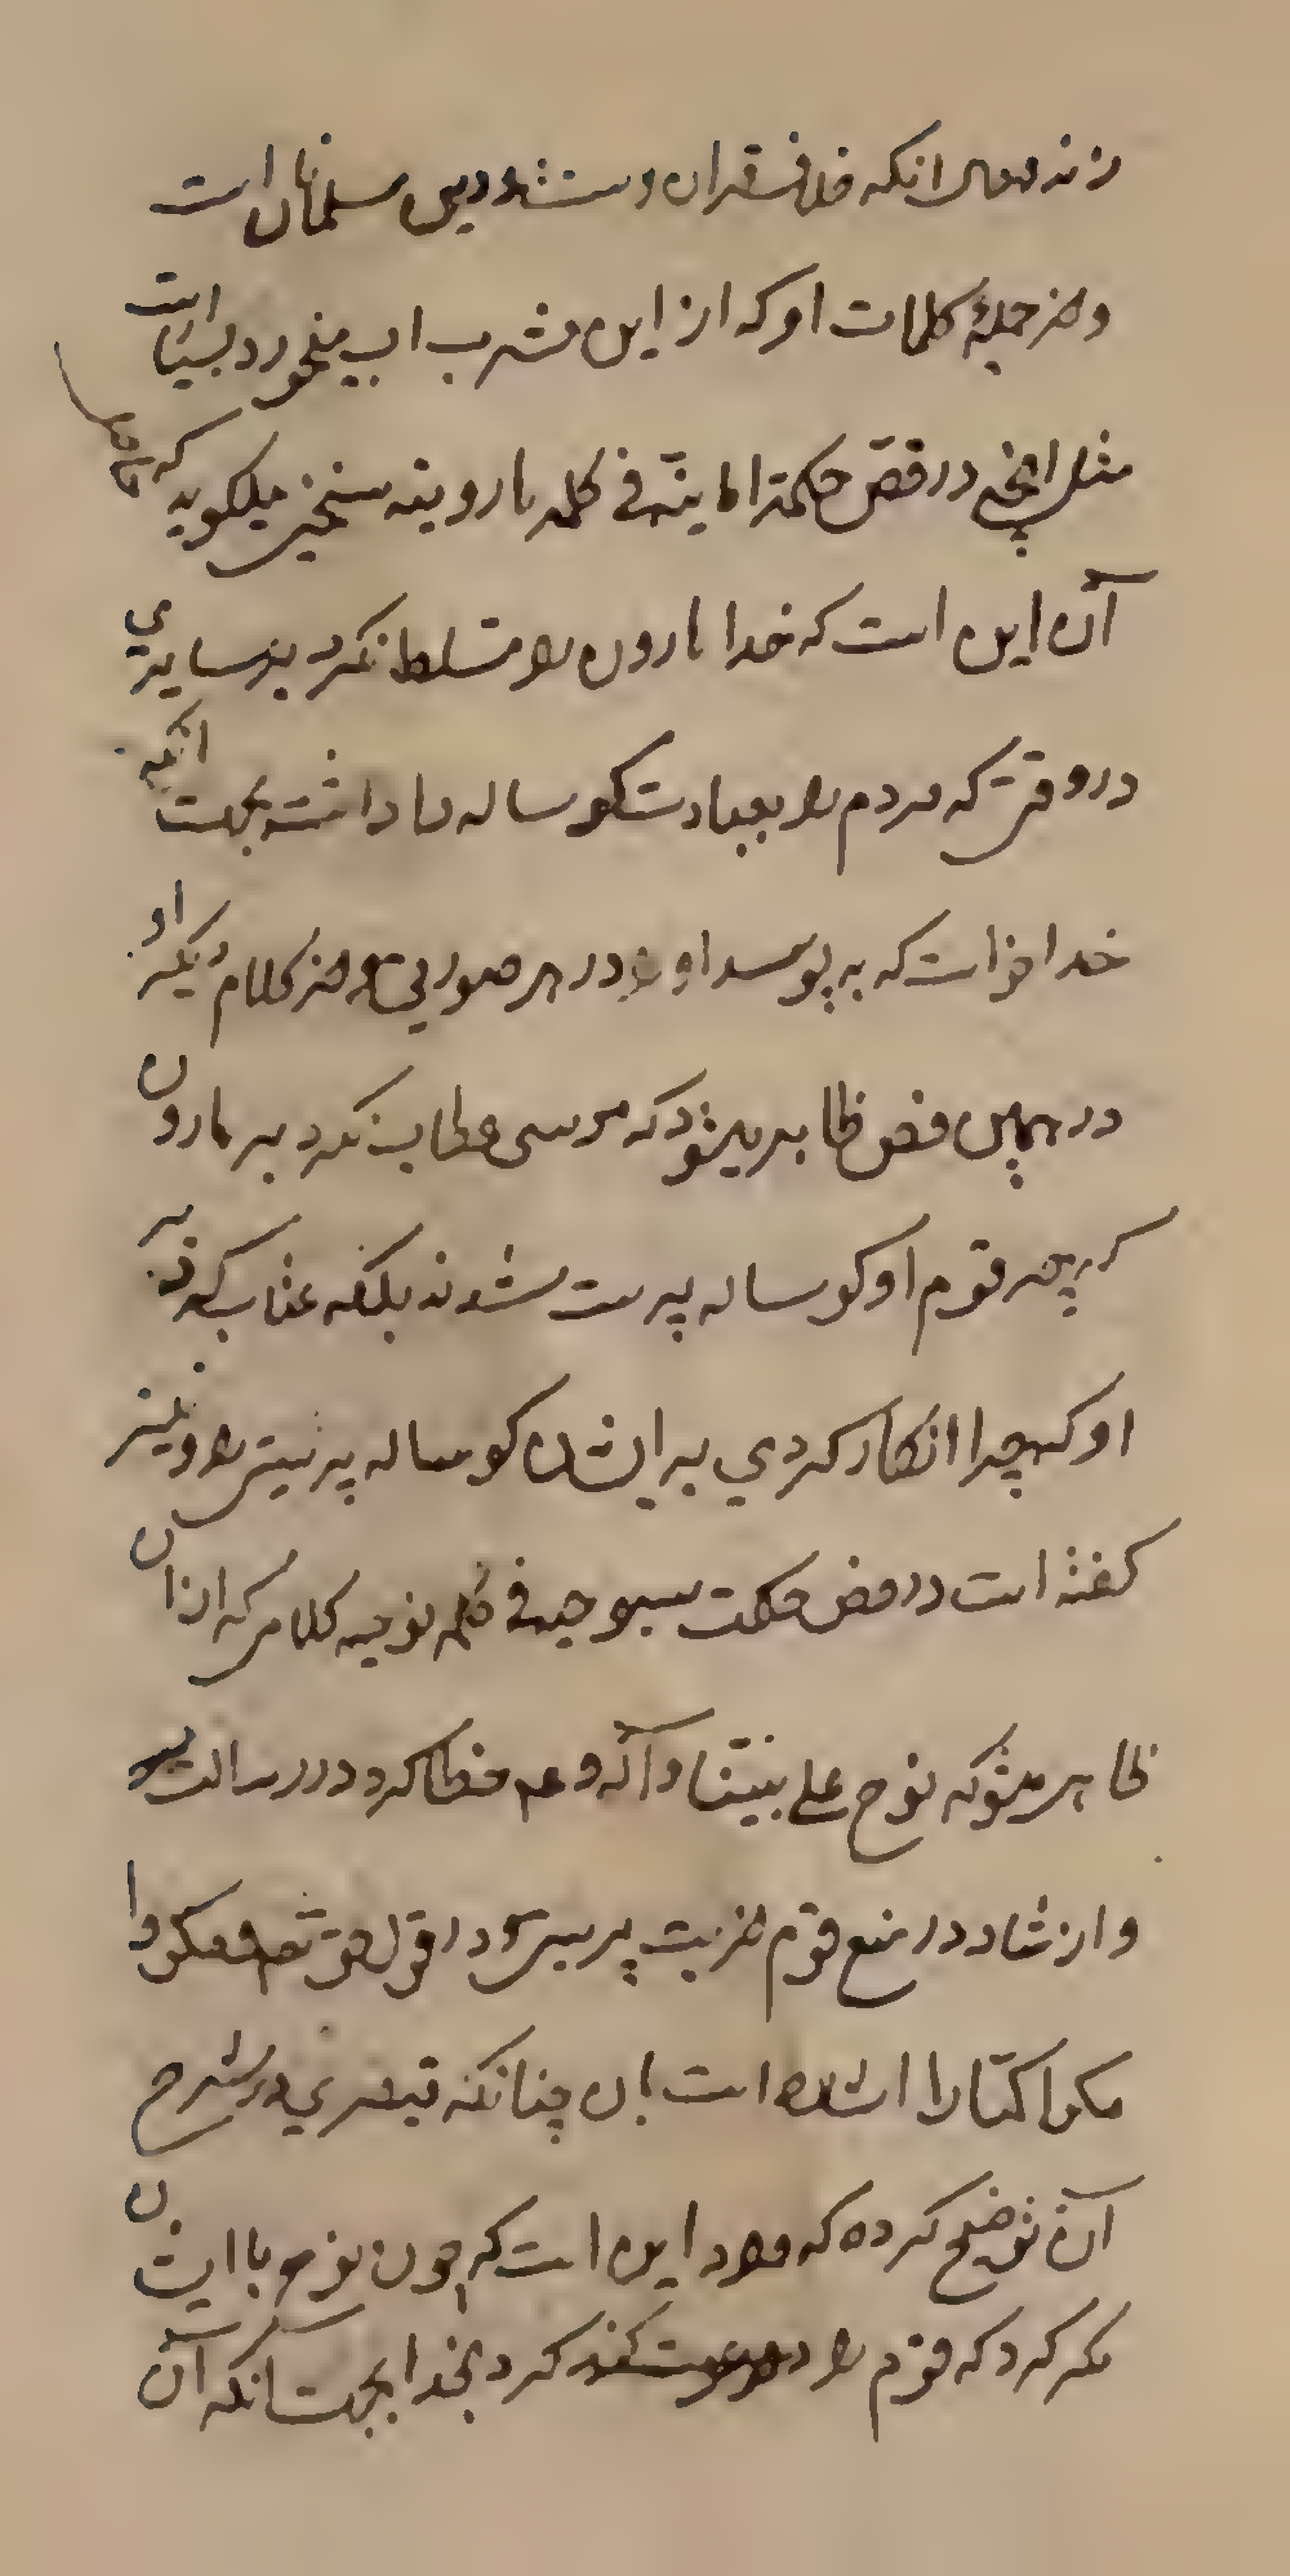 زند وحال انکه خلاف قران و سنت و دین مسلمانان است
و از جملهٔ کلمات او که از این مشرب اب میخورد بسیار است
مثل انچه در فص حکمة امامیته فی کلمه هارونیه سخنی میکوید که حاصل
آن این است که خدا هارون را مسلط نکرد بر سامری
در وقتی که مردم را بعبادت کوساله وا داشت بجهت انکه
خدا خواست که به پرسد او را در هر صورتی و از کلام دیکر او
در همین فص ظاهر میشود که موسی عطاب نکرد بر هارون
که چه قوم او کوساله پرست شدند بلکه عتاب کرد بر
او که چرا انکار کردی بر ایشان کوساله پرستی را و نیز
کفته است در فص حکمت سبوحیه فی کلمه نوحیه کلامی که از ان
ظاهر میشو که نوح علی نبینا و آله و عم خطا کرد در رسالت
و ارشاد در منع قوم از بت پرستی و در قول حق تعم و مکروا
مکرا کبارا اشاره است بان چنانکه قیصری در شرح
آن توضیح کرده که مراد این است که چون نوح با ایشان
مکر کرد که قوم را دعوت کرد بخدا بجهت انکه آن